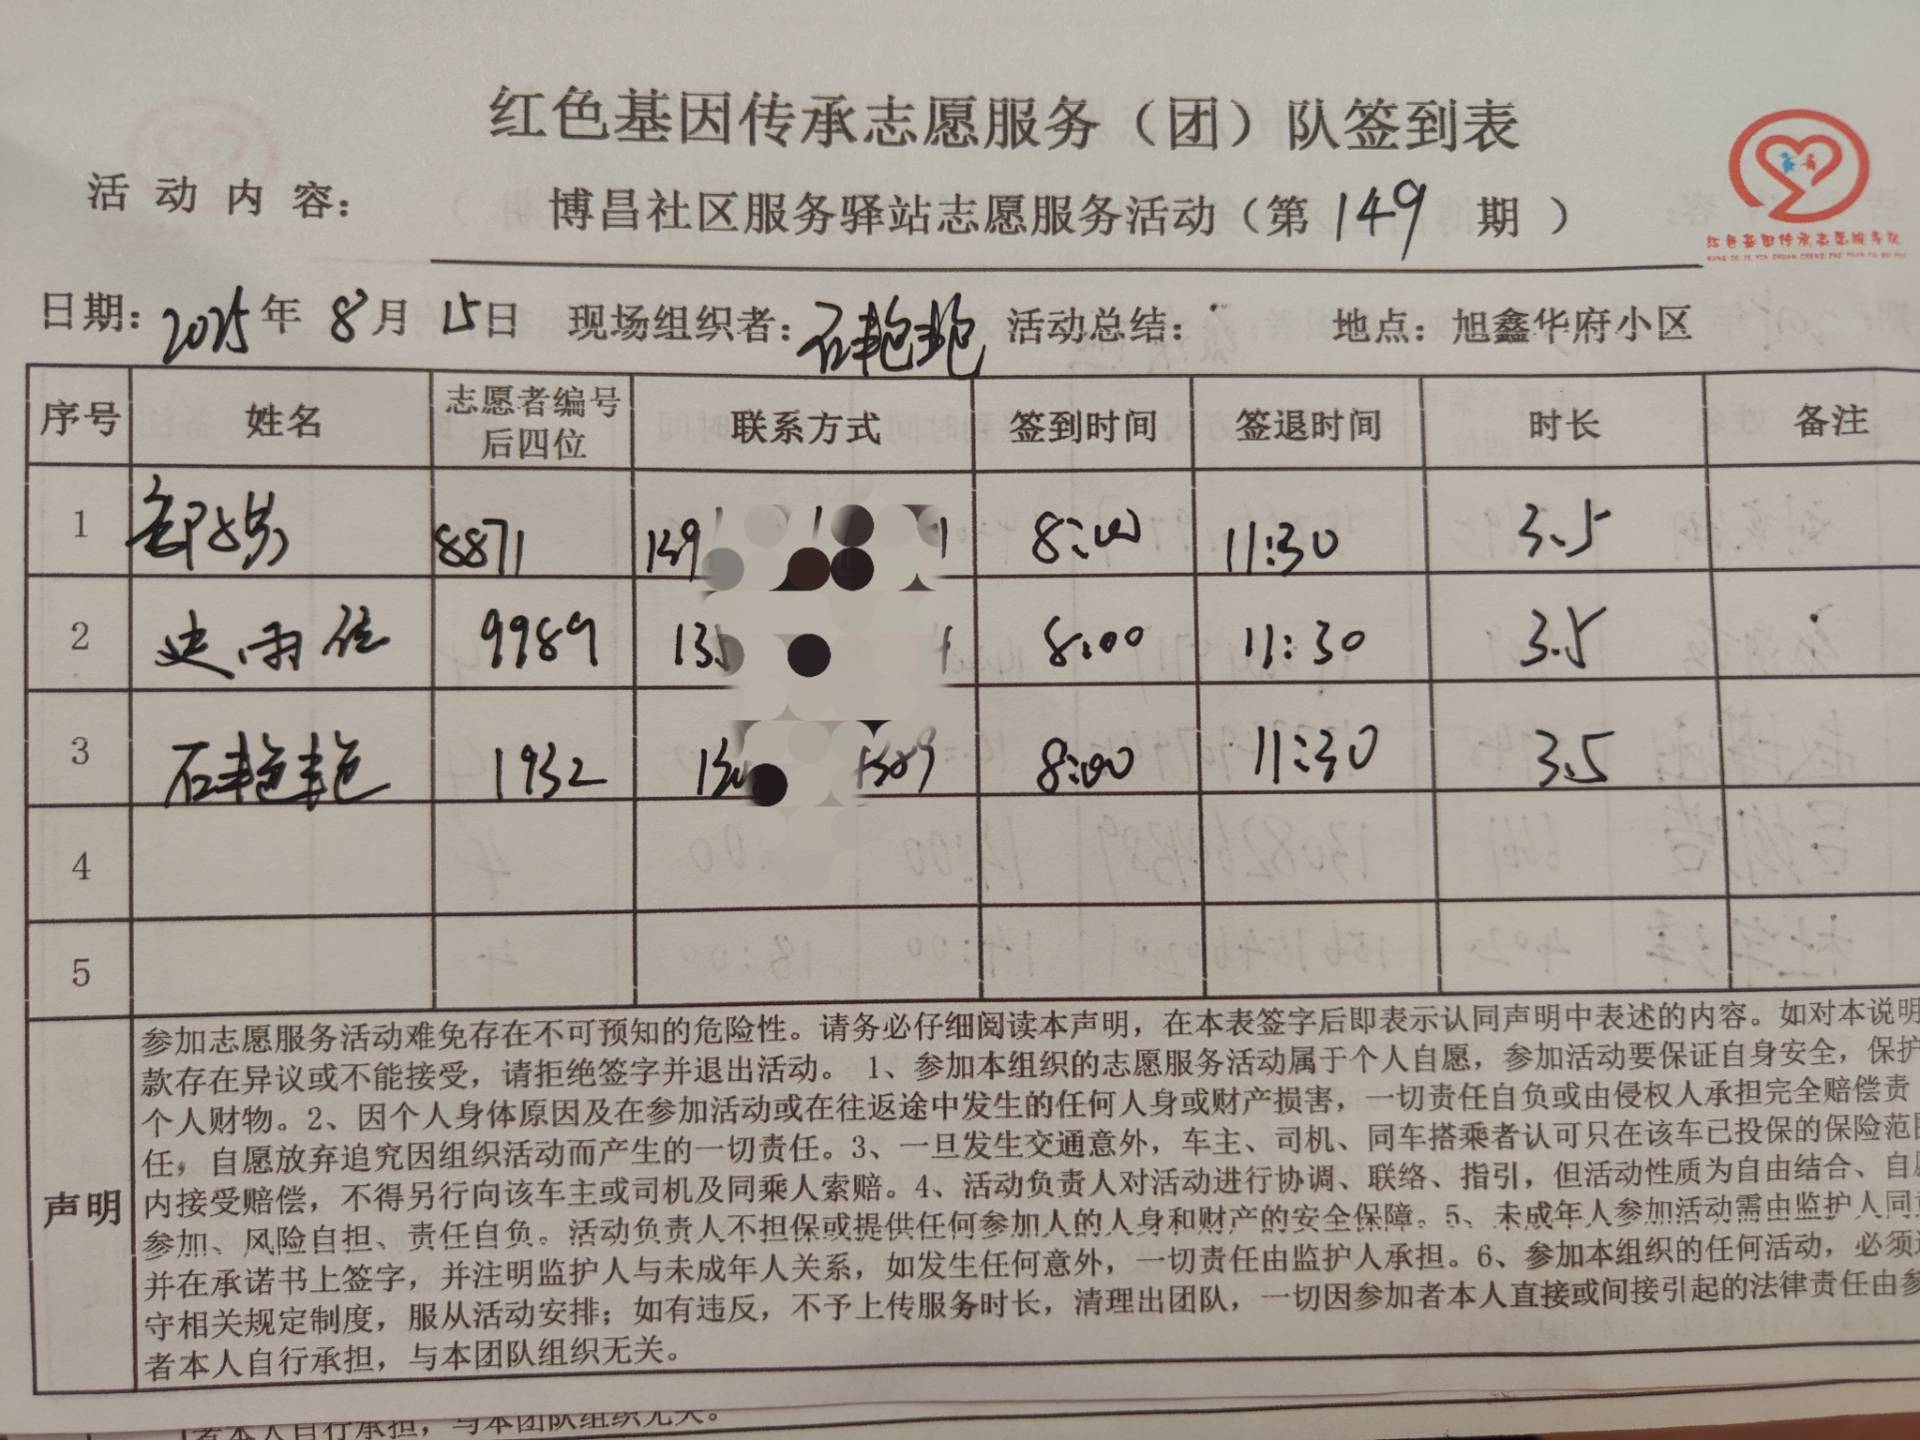 红色基因传承志愿服务（团）队签到表
活动内容： 博昌社区服务驿站志愿服务活动（第 149 期 ）
红色基因传承志愿服务队
日期：2025年 8月 15日 现场组织者：石艳艳 活动总结： 地点：旭鑫华府小区
序号 姓名 志愿者编号后四位 联系方式 签到时间 签退时间 时长 备注
1 8871 139 8:00 11:30 3.5
2 史雨 9989 13 8:00 11:30 3.5
3 石艳艳 1932 130 1389 8:00 11:30 3.5
4
5
声明
参加志愿服务活动难免存在不可预知的危险性。请务必仔细阅读本声明，在本表签字后即表示认同声明中表述的内容。如对本说明
款存在异议或不能接受，请拒绝签字并退出活动。 1、参加本组织的志愿服务活动属于个人自愿，参加活动要保证自身安全，保护
个人财物。2、因个人身体原因及在参加活动或在往返途中发生的任何人身或财产损害，一切责任自负或由侵权人承担完全赔偿责
任，自愿放弃追究因组织活动而产生的一切责任。3、一旦发生交通意外，车主、司机、同车搭乘者认可只在该车已投保的保险范围
内接受赔偿，不得另行向该车主或司机及同乘人索赔。4、活动负责人对活动进行协调、联络、指引，但活动性质为自由结合、自愿
参加、风险自担、责任自负。活动负责人不担保或提供任何参加人的人身和财产的安全保障。5、未成年人参加活动需由监护人同意
并在承诺书上签字，并注明监护人与未成年人关系，如发生任何意外，一切责任由监护人承担。6、参加本组织的任何活动，必须遵
守相关规定制度，服从活动安排；如有违反，不予上传服务时长，清理出团队，一切因参加者本人直接或间接引起的法律责任由参
者本人自行承担，与本团队组织无关。
者本人自行承担，与本团队组织无关。